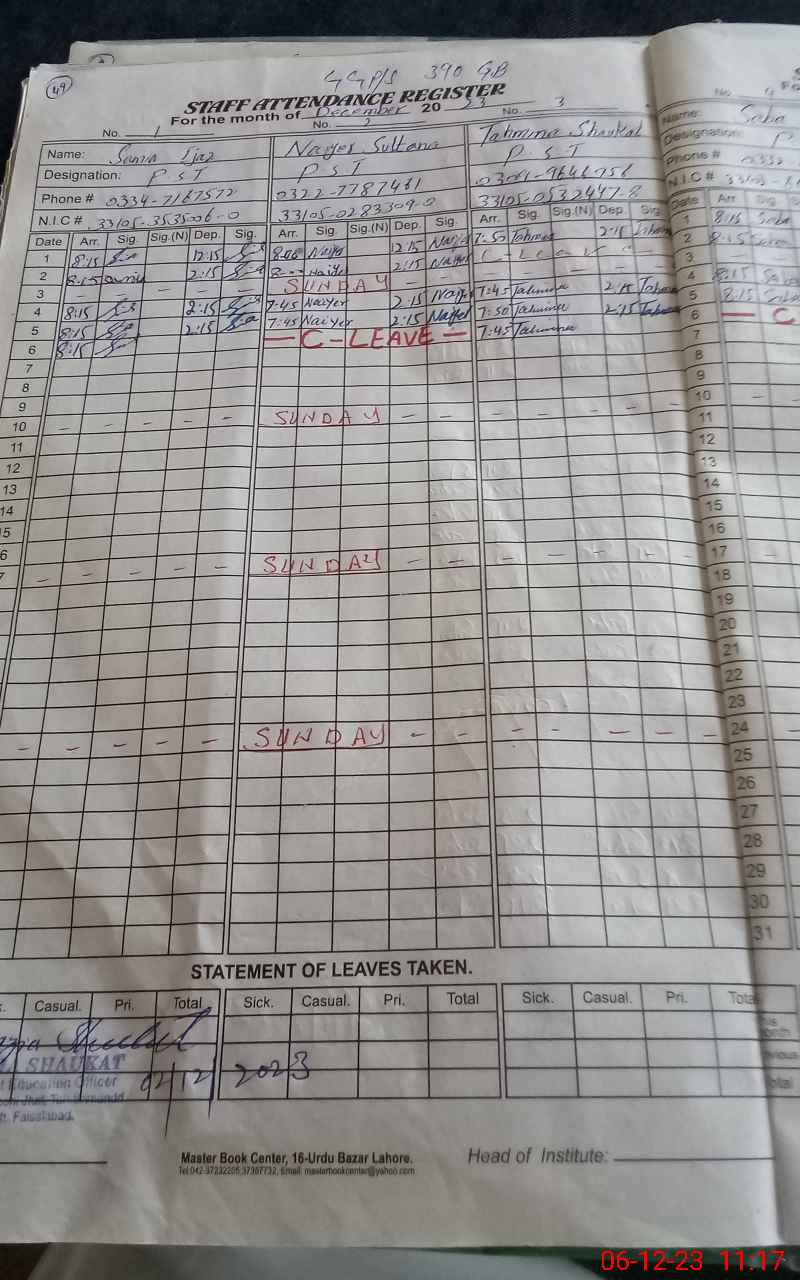 49
GGP/S 390 GB
STAFF ATTENDANCE REGISTER
For the month of December 20 23
No. 1 No. 2 No. 3 No. 4
Name: Samra Ejaz Nayer Sultana Tahmina Shaukat Name: Saba
Designation: P S T P S T P. S T Designation: P
Phone # 0334-7167572 0322-7787461 Phone # 0332
N.I.C # 33105-3535006-0 33105-0283309-0 33105-0532447-8 N.I.C #
Date Arr. Sig. Sig.(N) Dep. Sig. Arr. Sig. Sig.(N) Dep. Sig. Arr. Sig. Sig.(N) Dep. Sig. Date Arr. Sig
1 8:15 12:15 Naiyer 12 15 7:50 Tahmina 1 8:15 Saba
2 8:15 2:15 Naiyer 2:15 C - Leave 2 8:15
3 - - - - - SUNDAY - - - - - - - 3
4 8:15 2:15 7:45 Naiyer 2:15 Naiyer 7:45 Tahmina 2 15 4 8:15
5 8:15 2:15 7:45 Naiyer 2:15 Naiyer 7:50 Tahmina 2:15 5 8:15
6 8:15 — C - LEAVE — 7:45 Tahmina 6 — C
7 7
8 8
9 9
10 - - - - - SUNDAY - - - - - - - 10
11 11
12 12
13 13
14 14
15 15
16 16
17 - - - - SUNDAY - - - - - - 17
18
19
20
21
22
23
- - - - SUNDAY - - - - - - - 24
25
26
27
28
29
30
31
STATEMENT OF LEAVES TAKEN.
Casual. Pri. Total Sick. Casual. Pri. Total Sick. Casual. Pri. Total
SHAUKAT
Education Officer 02/12/2023
Faisalabad.
Master Book Center, 16-Urdu Bazar Lahore. Head of Institute:
Tel:042-37232205,37367732, Email: masterbookcenter@yahoo.com
06-12-23 11:17